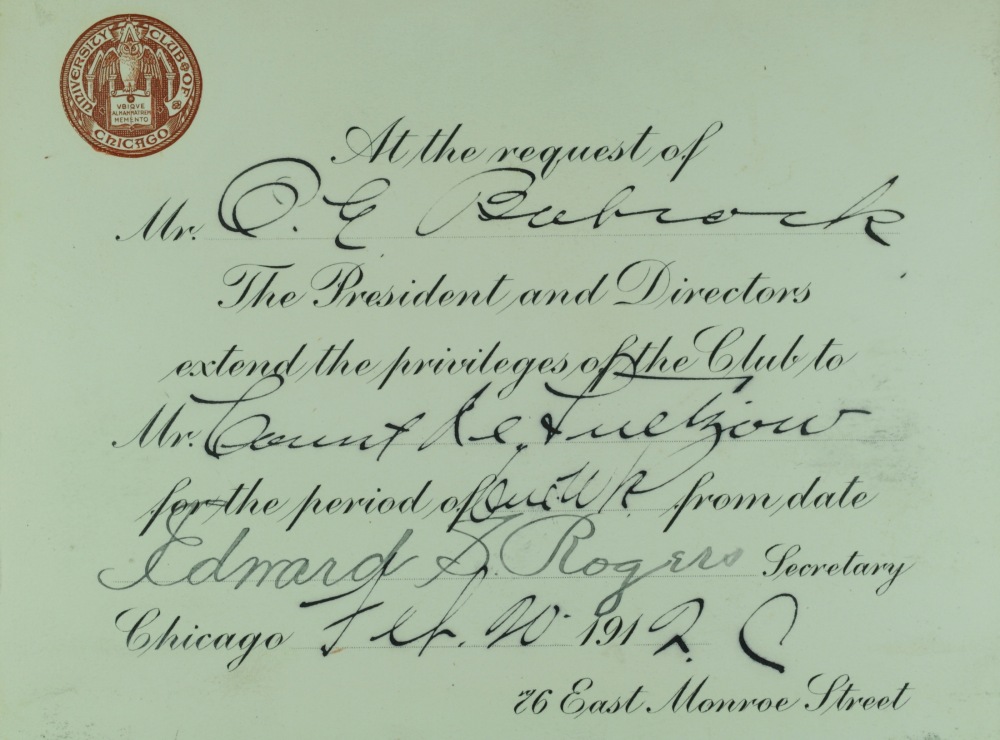 UNIVERSITY CLUB OF CHICAGO
VBIQVE
ALMAMMATREM
MEMENTO
At the request of
Mr. O. E. Babcock
The President and Directors
extend the privileges of the Club to
Mr. Count
for the period of One Wk from date
Edward S. Rogers Secretary
Chicago Feb. 20 1912.
76 East Monroe Street